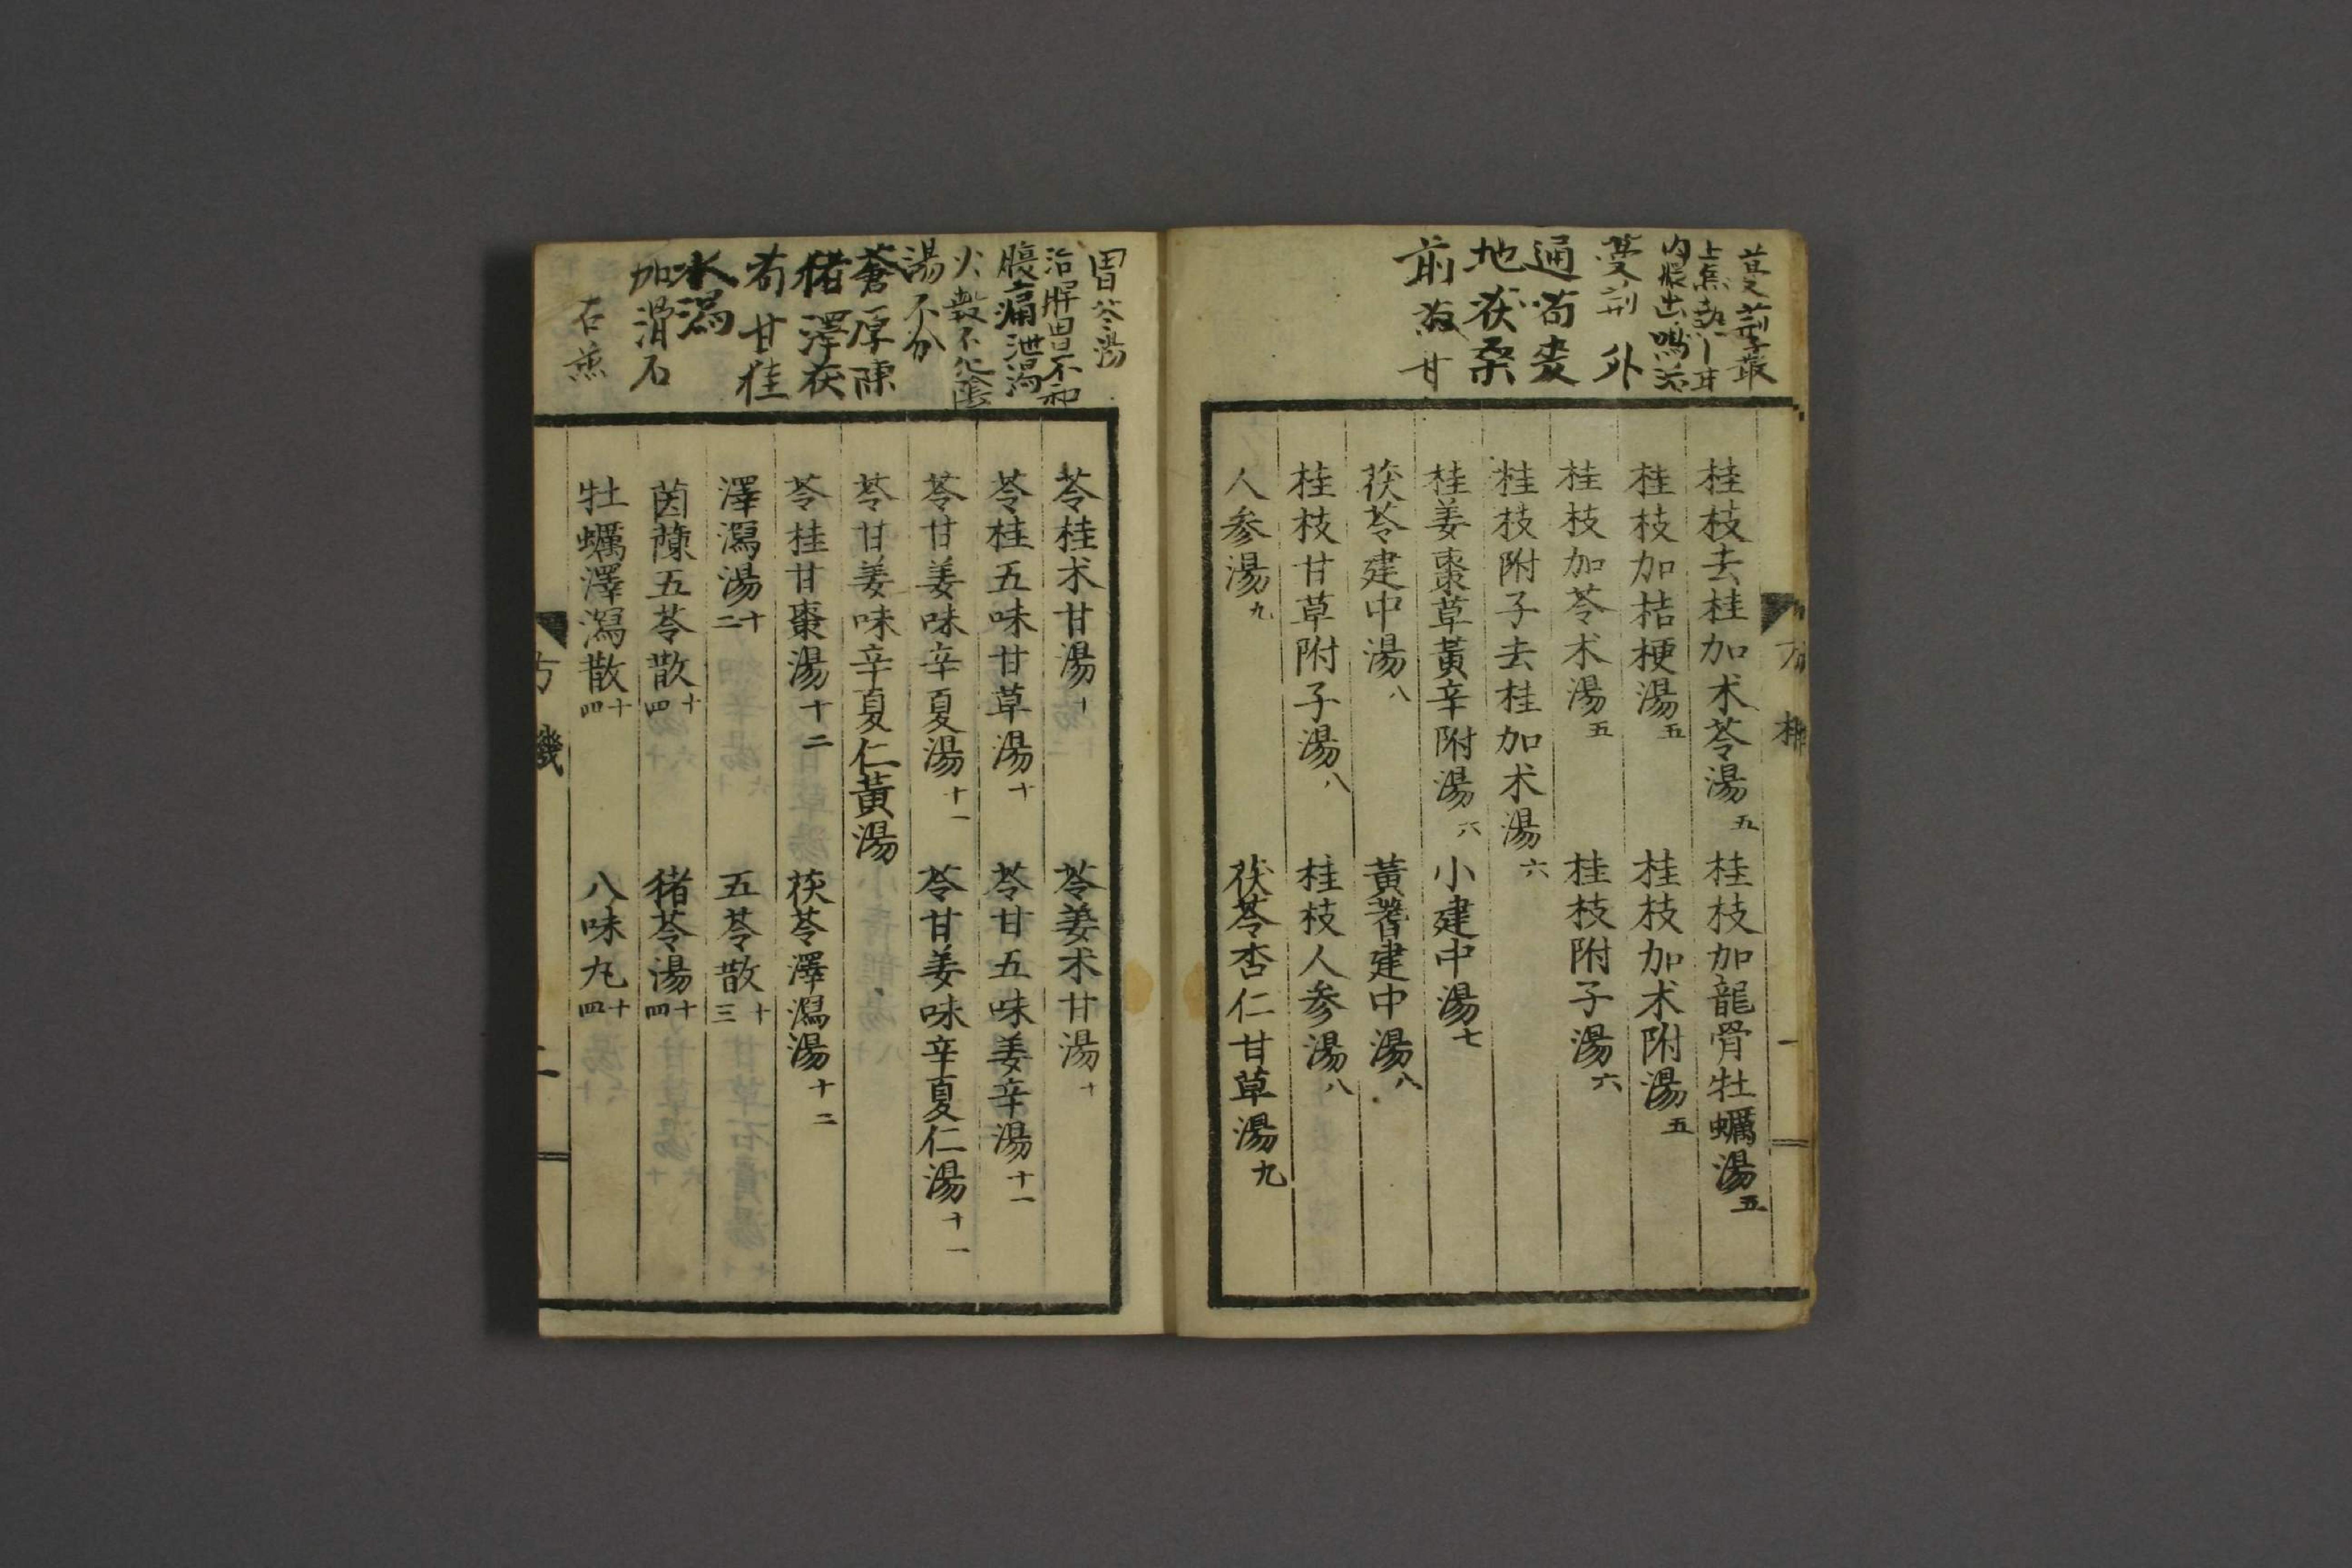 蔓荊子散
上焦熱
内脹出鳴
蔓荊 外
通荀麦
地茯桑
前 甘
桂枝去桂加朮苓湯五 桂枝加龍骨牡蠣湯五
桂枝加桔梗湯五 桂枝加朮附湯五
桂枝加苓朮湯五 桂枝附子湯六
桂枝附子去桂加朮湯六
桂姜棗草黃辛附湯六 小建中湯七
茯苓建中湯八 黃蓍建中湯八
桂枝甘草附子湯八 桂枝人参湯八
人参湯九 茯苓杏仁甘草湯九
方機 一
胃苓湯
治脾胃不和
腹痛泄瀉
火穀不化陰
湯不分
蒼厚陳
猪澤茯
芍甘桂
水瀉
加滑石
右煎
苓桂朮甘湯十 苓姜朮甘湯十
苓桂五味甘草湯十 苓甘五味姜辛湯十一
苓甘姜味辛夏湯十一 苓甘姜味辛夏仁湯十一
苓甘姜味辛夏仁黃湯
苓桂甘棗湯十二 茯苓澤瀉湯十二
澤瀉湯十二 五苓散十三
茵蔯五苓散十四 猪苓湯十四
牡蠣澤瀉散十四 八味丸十四
方機 二